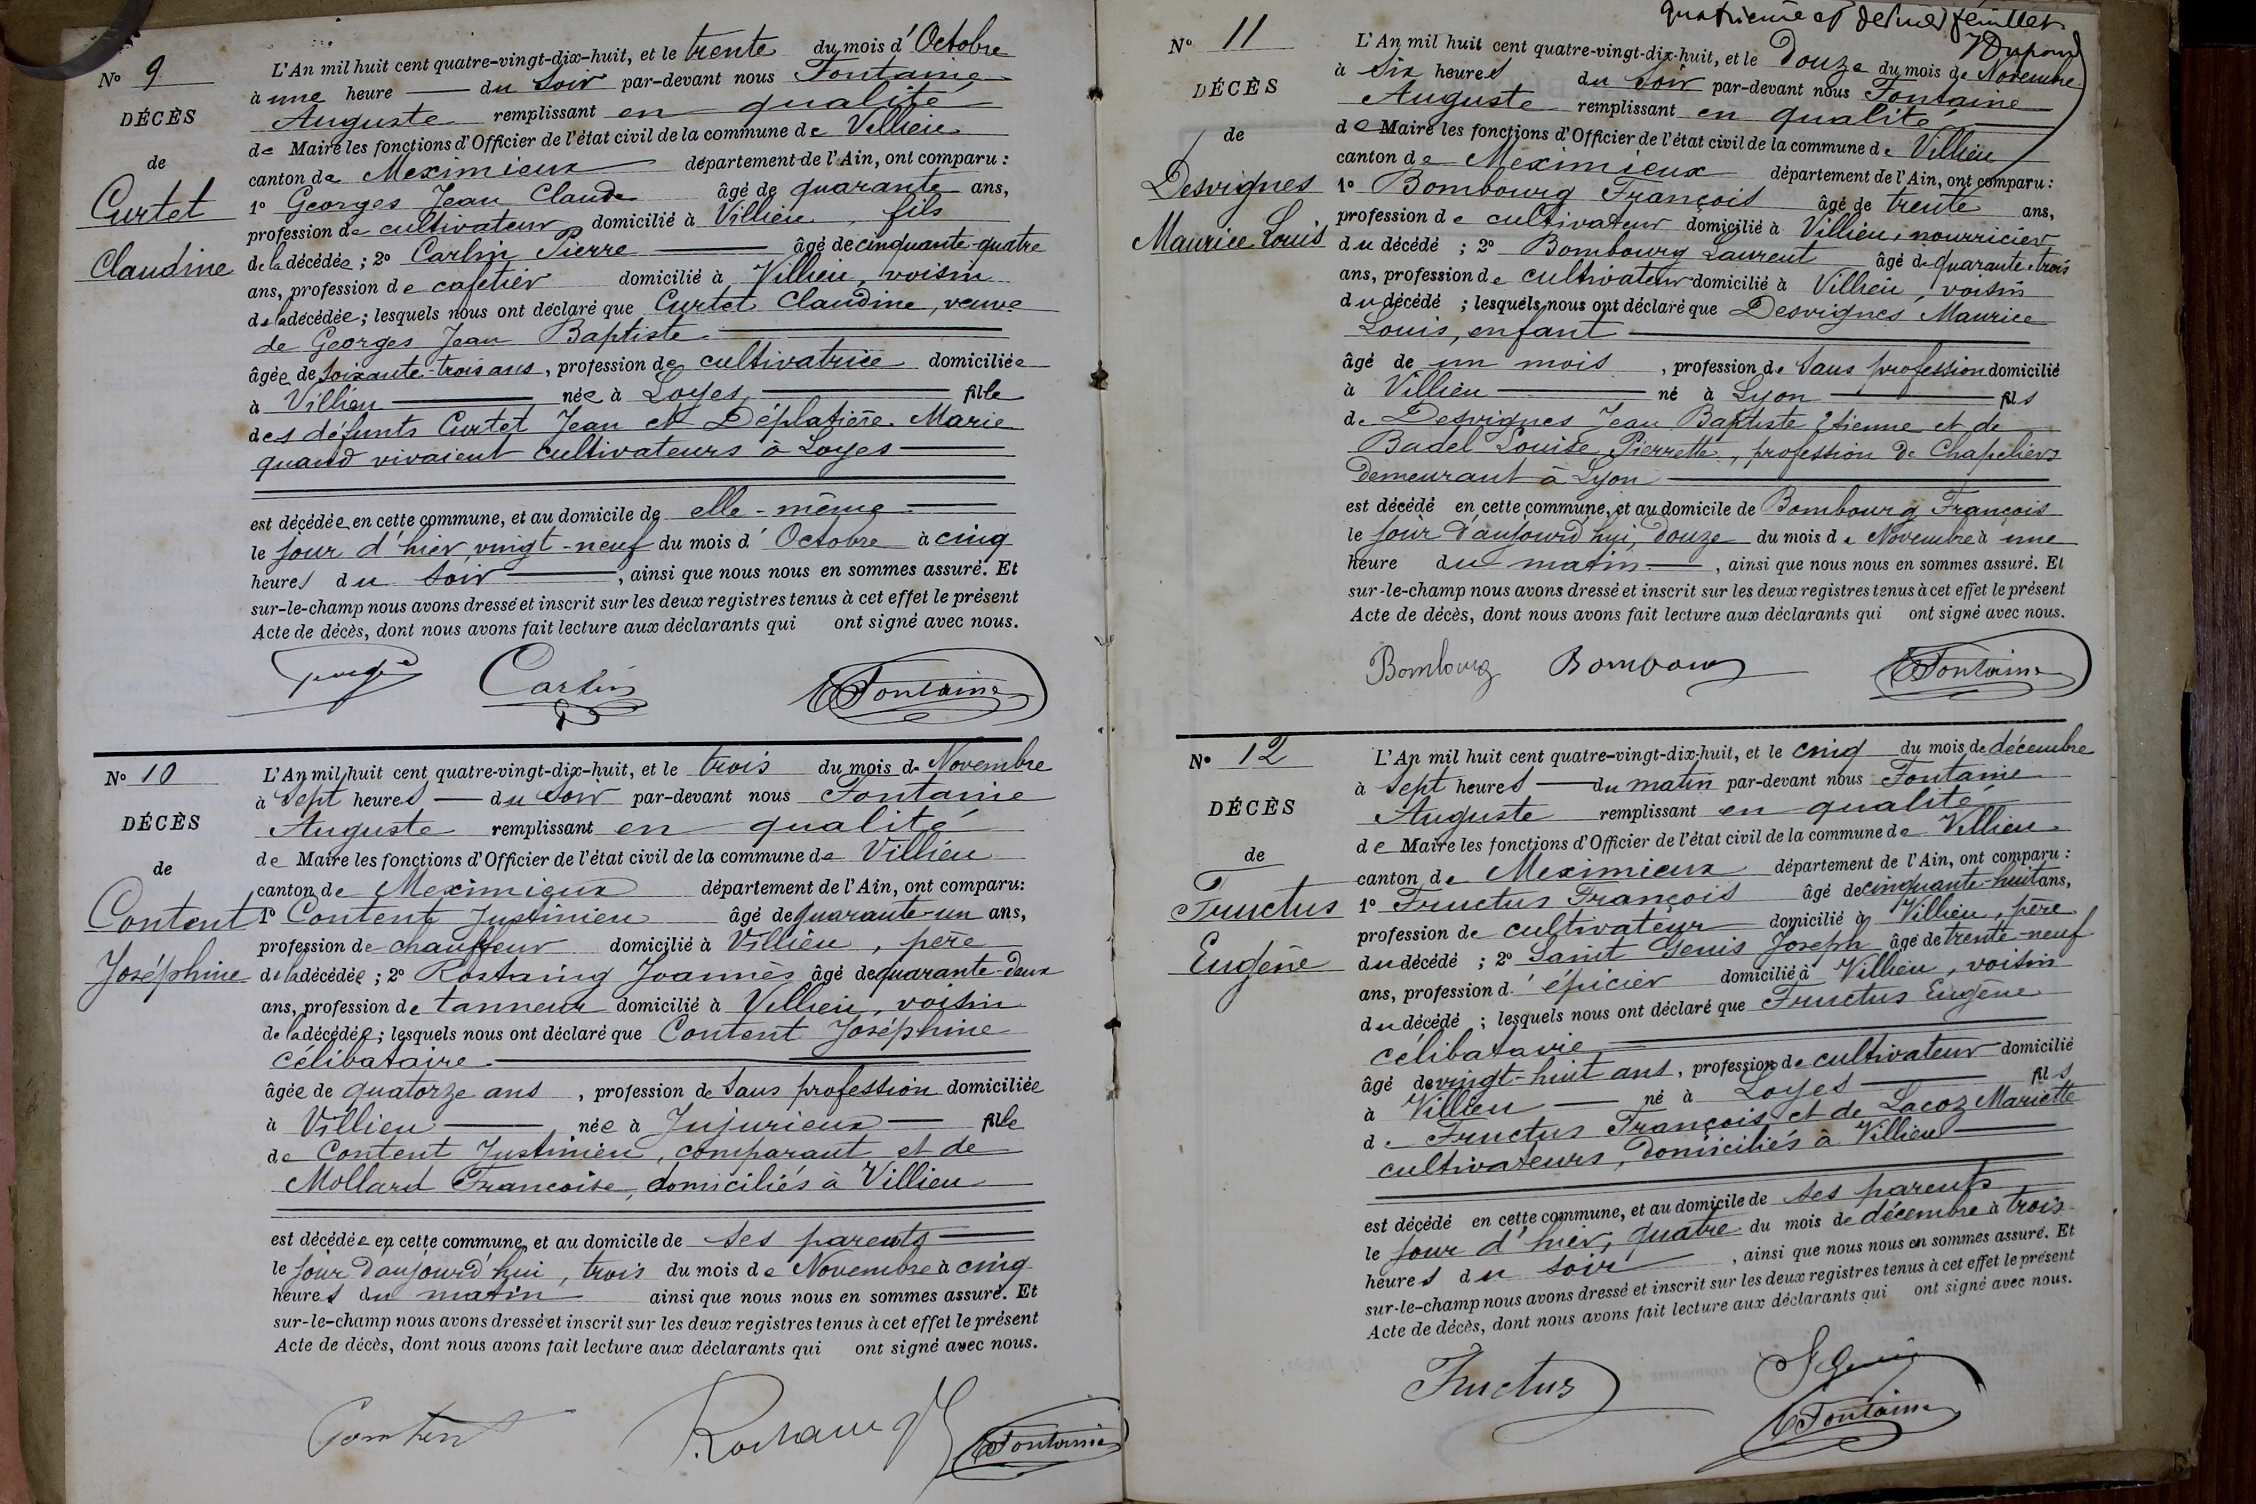 Nº 9
DÉCÈS
de
Curtet
Claudine
L'An mil huit cent quatre-vingt-dix-huit, et le trente du mois d'Octobre
à une heure du soir par-devant nous Fontaine
Auguste remplissant en qualité
de Maire les fonctions d'Officier de l'état civil de la commune de Villieu
canton de Meximieux département de l'Ain, ont comparu :
1º Georges Jean Claude âgé de quarante ans,
profession de cultivateur domicilié à Villieu, fils
de la décédée ; 2º Carlin Pierre âgé de cinquante-quatre
ans, profession de cafetier domicilié à Villieu, voisin
de la décédée ; lesquels nous ont déclaré que Curtet Claudine, veuve
de Georges Jean Baptiste
âgée de soixante-trois ans, profession de cultivatrice domiciliée
à Villieu née à Loyes fille
des défunts Curtet Jean et Déplatière Marie
quand vivaient cultivateurs à Loyes
est décédée en cette commune, et au domicile de elle-même
le jour d'hier vingt-neuf du mois d'Octobre à cinq
heures du soir, ainsi que nous nous en sommes assuré. Et
sur-le-champ nous avons dressé et inscrit sur les deux registres tenus à cet effet le présent
Acte de décès, dont nous avons fait lecture aux déclarants qui ont signé avec nous.
Carlin Fontaine
Nº 10
DÉCÈS
de
Content
Joséphine
L'An mil huit cent quatre-vingt-dix-huit, et le trois du mois de Novembre
à sept heures du soir par-devant nous Fontaine
Auguste remplissant en qualité
de Maire les fonctions d'Officier de l'état civil de la commune de Villieu
canton de Meximieux département de l'Ain, ont comparu :
1º Content Justinien âgé de quarante-un ans,
profession de chauffeur domicilié à Villieu, père
de la décédée ; 2º Rostaing Joannès âgé de quarante-deux
ans, profession de tanneur domicilié à Villieu, voisin
de la décédée ; lesquels nous ont déclaré que Content Joséphine
célibataire
âgée de quatorze ans, profession de sans profession domiciliée
à Villieu née à Jujurieux fille
de Content Justinien, comparant et de
Mollard Francoise, domiciliés à Villieu
est décédée en cette commune, et au domicile de ses parents
le jour d'aujourd'hui, trois du mois de Novembre à cinq
heures du matin ainsi que nous nous en sommes assuré. Et
sur-le-champ nous avons dressé et inscrit sur les deux registres tenus à cet effet le présent
Acte de décès, dont nous avons fait lecture aux déclarants qui ont signé avec nous.
Content Rostaing J Fontaine
quatrième et dernier feuillet
Dupond
Nº 11
DÉCÈS
de
Desvignes
Maurice Louis
L'An mil huit cent quatre-vingt-dix-huit, et le Douze du mois de Novembre
à six heures du soir par-devant nous Fontaine
Auguste remplissant en qualité
de Maire les fonctions d'Officier de l'état civil de la commune de Villieu
canton de Meximieux département de l'Ain, ont comparu :
1º Bombourg François âgé de trente ans,
profession de cultivateur domicilié à Villieu, nourricier
du décédé ; 2º Bombourg Laurent âgé de quarante-trois
ans, profession de cultivateur domicilié à Villieu, voisin
du décédé ; lesquels nous ont déclaré que Desvignes Maurice
Louis, enfant
âgé de un mois, profession de sans profession domicilié
à Villieu né à Lyon fils
de Desvignes Jean Baptiste Etienne et de
Badel Louise Pierrette, profession de Chapeliers
demeurant à Lyon
est décédé en cette commune, et au domicile de Bombourg François
le jour d'aujourd'hui, douze du mois de Novembre à une
heure du matin, ainsi que nous nous en sommes assuré. Et
sur-le-champ nous avons dressé et inscrit sur les deux registres tenus à cet effet le présent
Acte de décès, dont nous avons fait lecture aux déclarants qui ont signé avec nous.
Bombourg Fontaine
Nº 12
DÉCÈS
de
Fructus
Eugène
L'An mil huit cent quatre-vingt-dix-huit, et le cinq du mois de décembre
à sept heures du matin par-devant nous Fontaine
Auguste remplissant en qualité
de Maire les fonctions d'Officier de l'état civil de la commune de Villieu
canton de Meximieux département de l'Ain, ont comparu :
1º Fructus François âgé de cinquante-huit ans,
profession de cultivateur domicilié à Villieu, père
du décédé ; 2º Saint Genis Joseph âgé de trente-neuf
ans, profession d'épicier domicilié à Villieu, voisin
du décédé ; lesquels nous ont déclaré que Fructus Eugène
célibataire
âgé de vingt-huit ans, profession de cultivateur domicilié
à Villieu né à Loyes fils
de Fructus François et de Lacoz Mariette
cultivateurs, domiciliés à Villieu
est décédé en cette commune, et au domicile de ses parents
le jour d'hier, quatre du mois de décembre à trois
heures du soir, ainsi que nous nous en sommes assuré. Et
sur-le-champ nous avons dressé et inscrit sur les deux registres tenus à cet effet le présent
Acte de décès, dont nous avons fait lecture aux déclarants qui ont signé avec nous.
Fructus
Fontaine